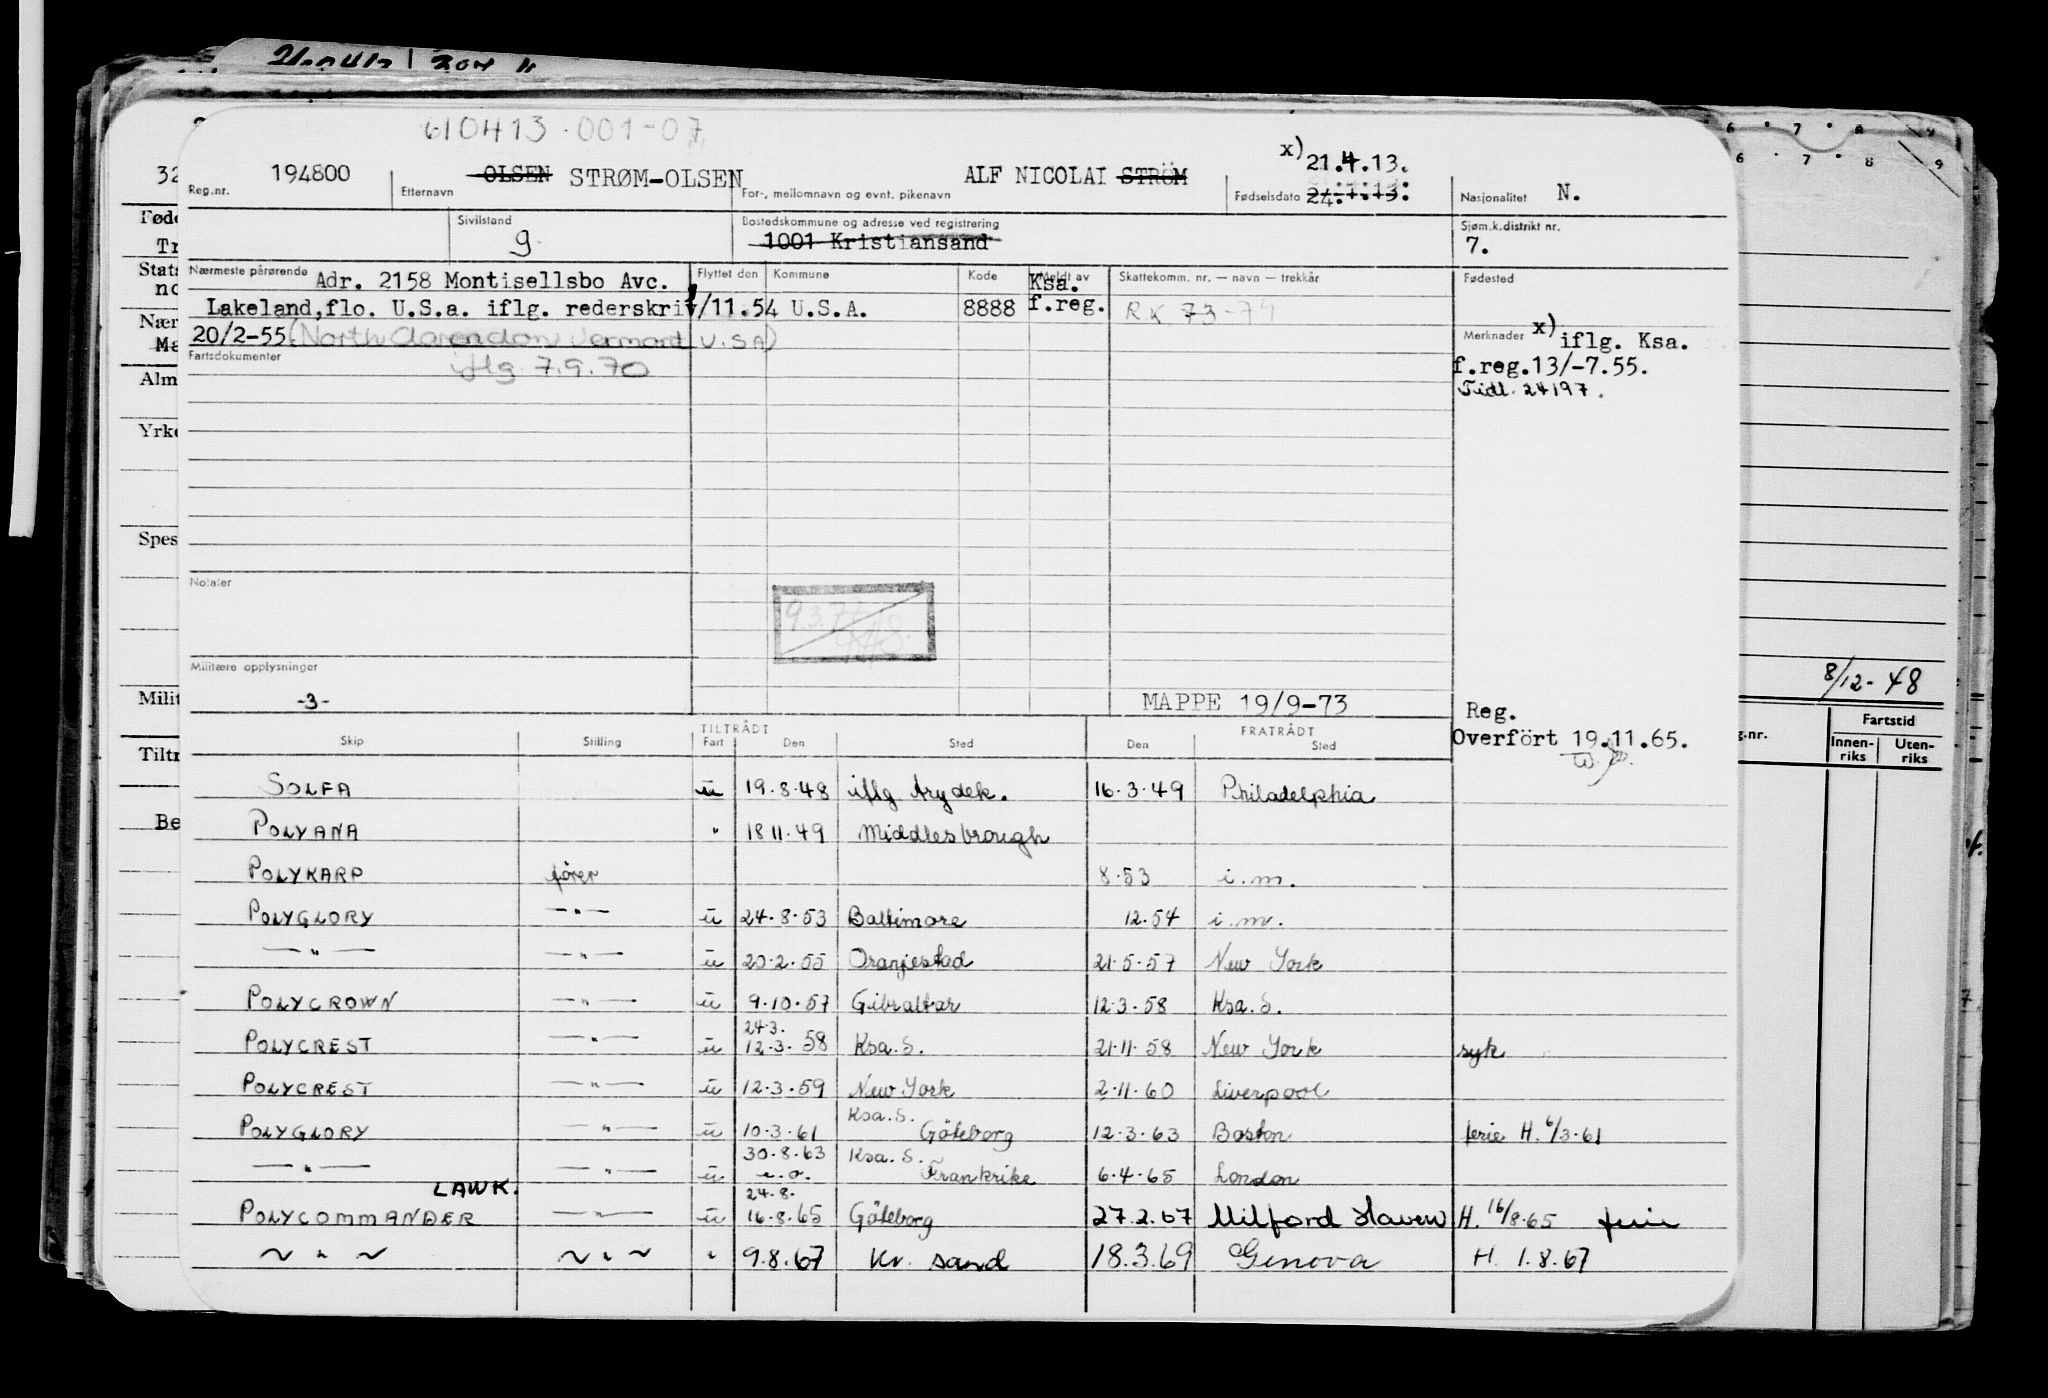 610413.001-07
194800 OLSEN STRØM-OLSEN ALF NICOLAI STRÖM x) 21.4.13. N.
Reg.nr. Etternavn For-, mellomnavn og evnt. pikenavn Fødselsdato Nasjonalitet
Sivilstand Bostedskommune og adresse ved registrering Sjøm.k.distrikt nr.
g. 1001 Kristiansand 7.
Nærmeste pårørende Adr. 2158 Montisellsbo Avc. Flyttet den Kommune Kode Meldt av Skattekomm. nr. — navn — trekkår Fødested
Lakeland,flo. U.S.a. iflg. rederskriv /11.54 U.S.A. 8888 Ksa. f.reg. RK 73-74
20/2-55 (North Clarendon Vermont U.S.A) Merknader x) iflg. Ksa.
Fartsdokumenter iflg. 7.9.70 f.reg.13/-7.55.
Tidl. 24197.
Notater
Militære opplysninger
-3- MAPPE 19/9-73 Reg.
Overført 19.11.65.
TILTRÅDT FRATRÅDT
Skip Stilling Fart Den Sted Den Sted
SOLFA u 19.8.48 iflg Arydek. 16.3.49 Philadelphia
POLYANA " 18 11.49 Middlesbrough
POLYKARP fører 8.53 i.m.
POLYGLORY —"— u 24.8.53 Baltimore 12.54 i.m.
—"— —"— u 20.2.55 Oranjestad 21.5.57 New York
POLYCROWN —"— u 9.10.57 Gibraltar 12.3.58 Ksa. S.
24.3.
POLYCREST —"— u 12.3.58 Ksa. S. 21.11.58 New York syk
POLYCREST —"— u 12.3.59 New York 2.11.60 Liverpool
Ksa. S.
POLYGLORY —"— u 10.3.61 Göteborg 12.3.63 Boston ferie H. 6/3-61
30.8.63 Ksa. S.
—"— —"— u Frankrike 6.4.65 London
LAWK. 24.8.
POLYCOMMANDER —"— u 16.8.65 Göteborg 27.2.67 Milford Haven H. 16/8.65 ferie
~ " ~ ~ " ~ " 9.8.67 Kr. sand 18.3.69 Genova H. 1.8.67
8/12-48
Fartstid
g.nr. Innen-riks Uten-riks
32
Føde
Tr
Stats
no
Nær
Ma
Alm
Yrke
Spes
Milit
Tiltr
Be